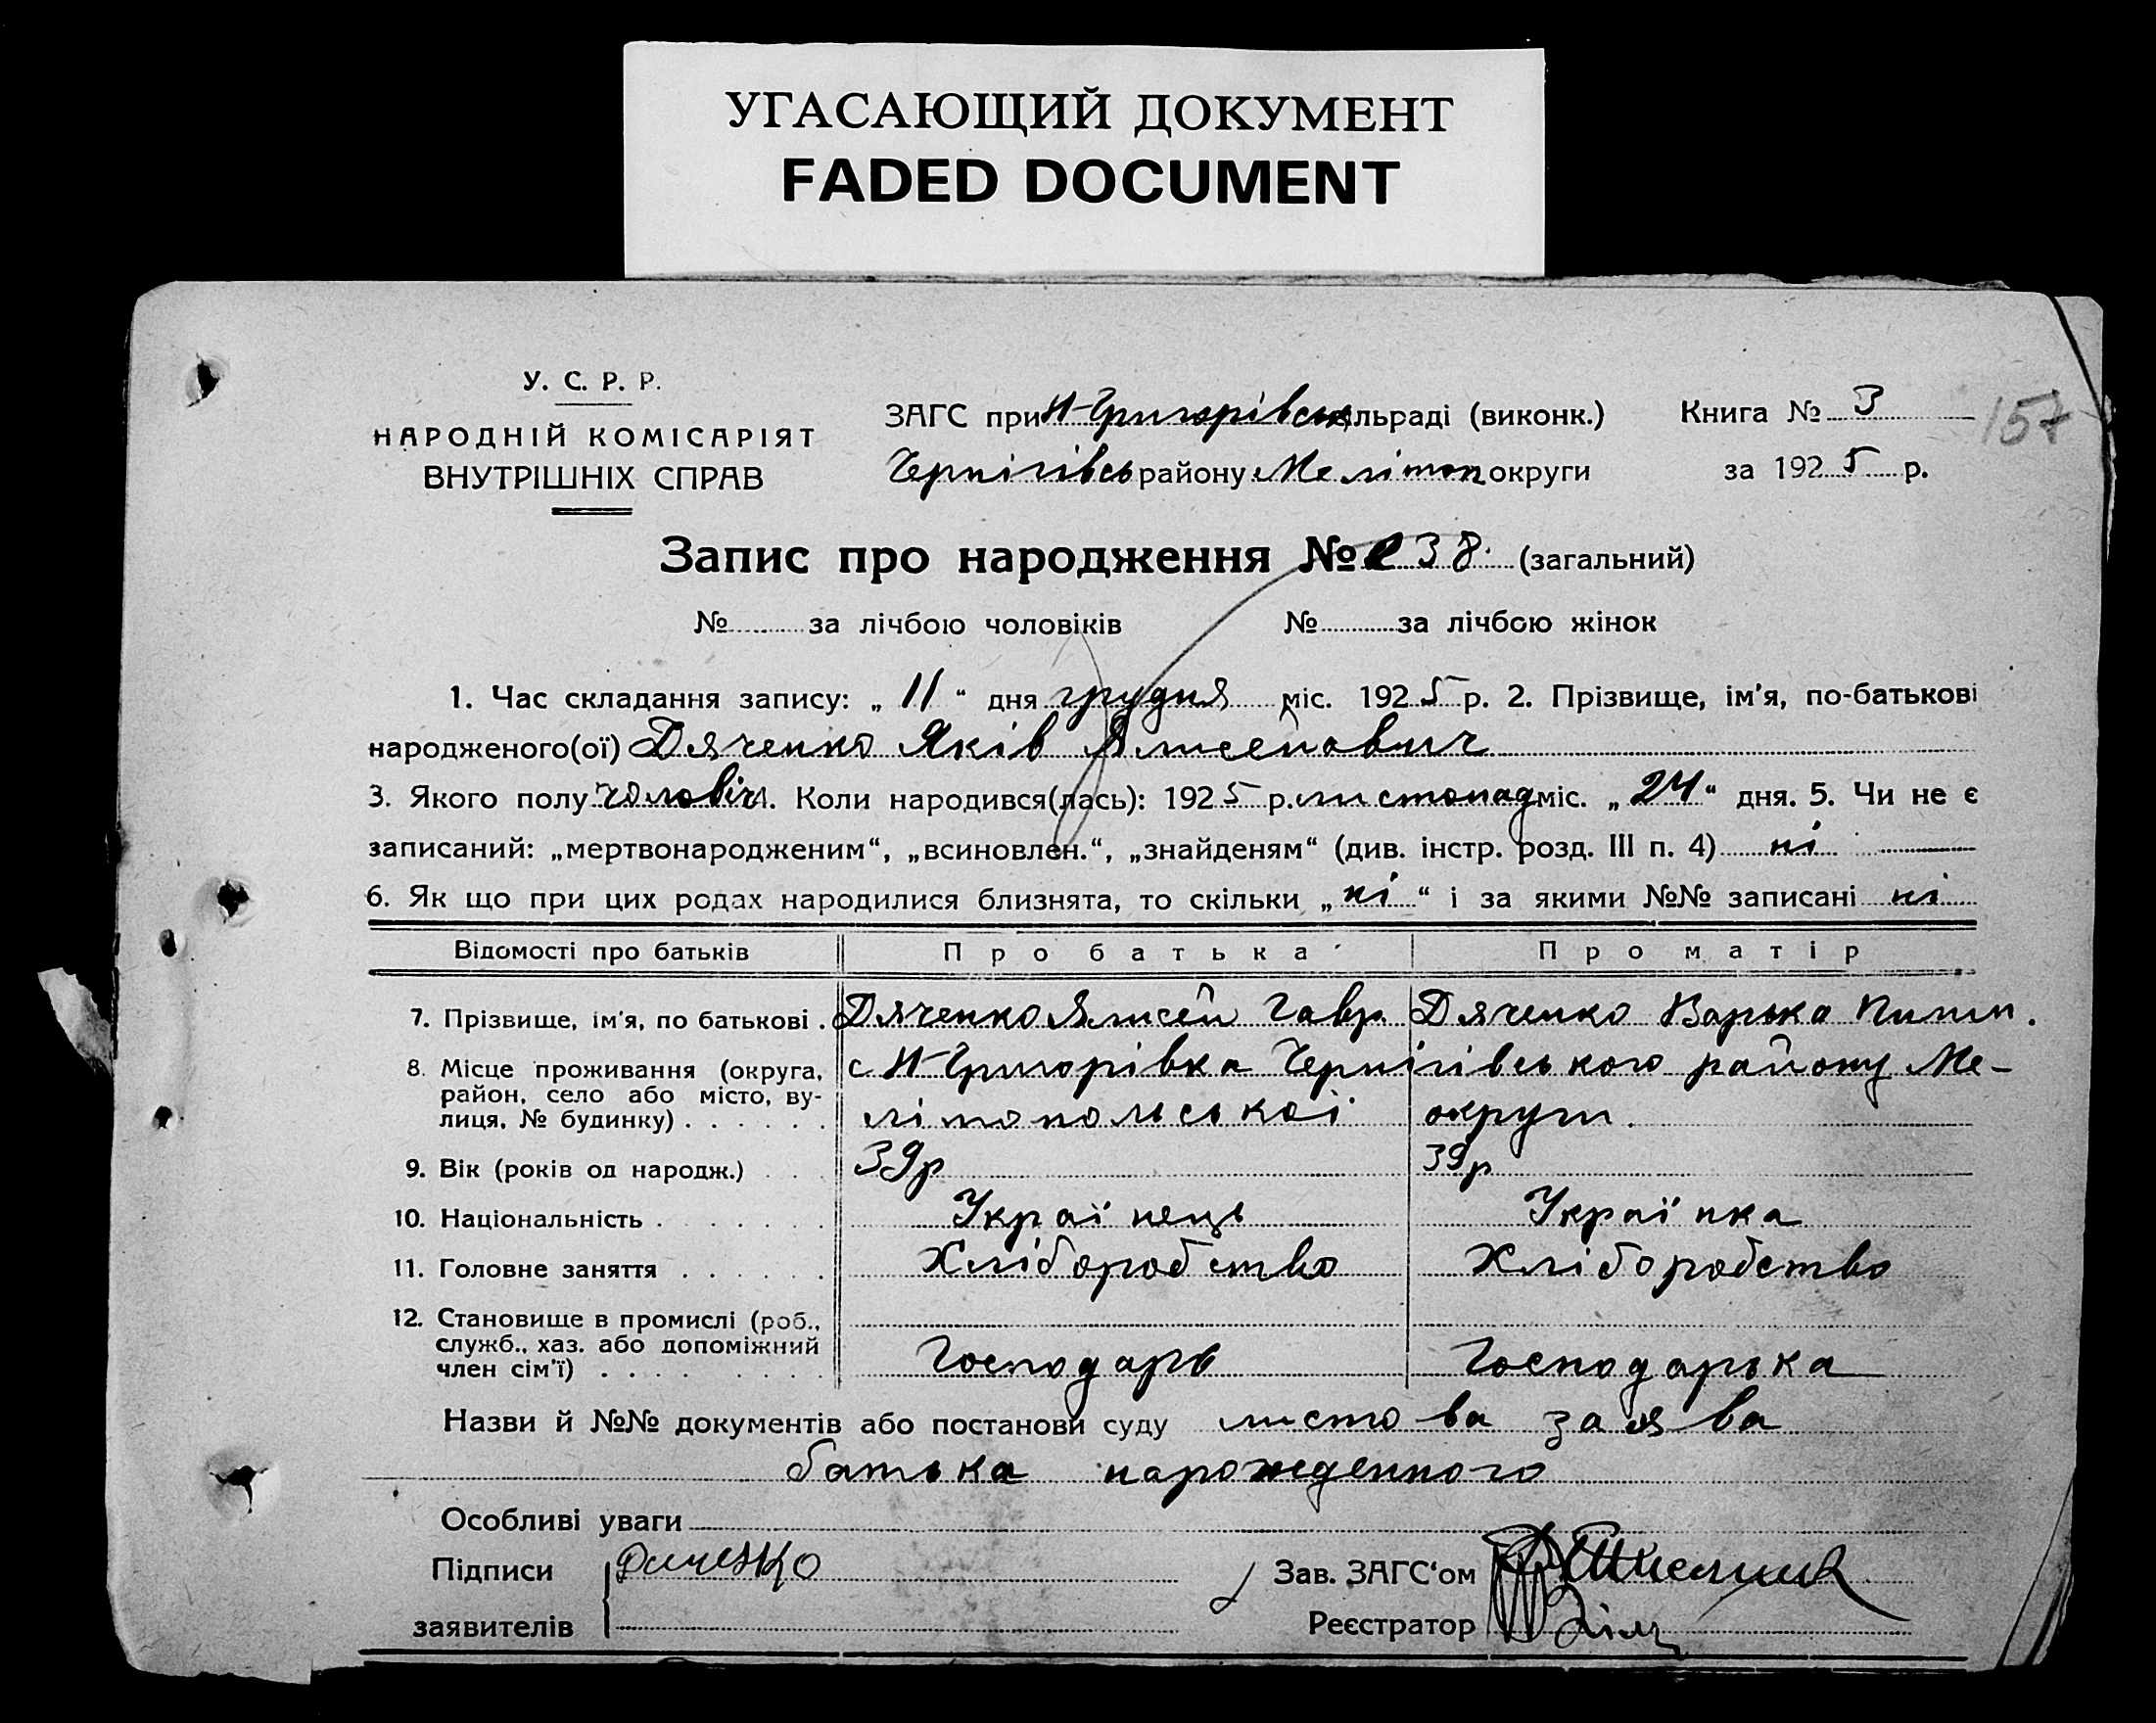 УГАСАЮЩИЙ ДОКУМЕНТ
FADED DOCUMENT
У. С. Р. Р.
НАРОДНІЙ КОМІСАРІЯТ
ВНУТРІШНІХ СПРАВ
ЗАГС при Н-Григорівськ льраді (виконк.)
Чернігівсь району Мелітоп округи
Книга № 3
за 1925 р.
157
Запис про народження № 238. (загальний)
№ за лічбою чоловіків № за лічбою жінок
1. Час складання запису: „ 11 “ дня грудня міс. 1925 р. 2. Прізвище, ім'я, по-батькові
народженого(ої) Дяченко Яків Ялисейович
3. Якого полу чоловіч. Коли народився(лась): 1925 р. листопад міс. „ 24 “ дня. 5. Чи не є
записаний: „мертвонародженим“, „всиновлен.“, „знайденям“ (див. інстр. розд. III п. 4) ні
6. Як що при цих родах народилися близнята, то скільки „ ні “ і за якими №№ записані ні
Відомості про батьків Про батька Про матір
7. Прізвище, ім'я, по батькові . Дяченко Ялисей Гавр. Дяченко Варька Пилип.
8. Місце проживання (округа, район, село або місто, ву-лиця, № будинку) . . . . . . с Н-Григорівка Чернігівського району Ме-
літопольської округи.
9. Вік (років од народж.) . . . 39р 39р
10. Національність . . . . . . . Українець Українка
11. Головне заняття . . . . . . Хліборобство Хліборобство
12. Становище в промислі (роб., служб., хаз. або допоміжний член сім'ї) . . . . . . . . . Господарь Господарька
Назви й №№ документів або постанови суду листова заява
батька нарожденного
Особливі уваги
Підписи Дяченко Зав. ЗАГС‘ом
заявителів Реєстратор